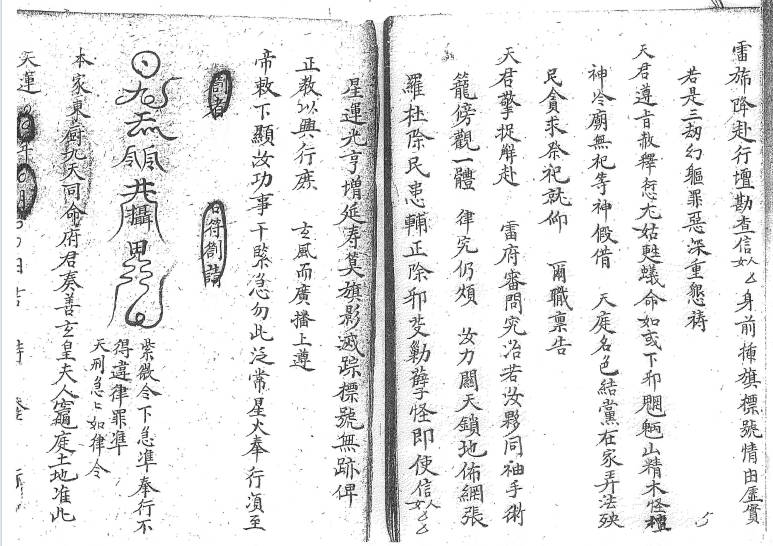 雷斾降赴行壇勘查信人女厶身前挿旗標號情由虛實
若是三劫幻軀罪惡深重懇禱
天君遵旨赦釋愆尤姑甦蟻命如或下邪魍魎山精木怪壇
神冷廟無祀等神假借 天庭名色結黨在家弄法殃
民貪求祭祀就仰 爾職稟告
天君擎捉解赴 雷府審問究治若汝夥同袖手術
籠傍觀一體 律究仍煩 汝力關天鎖地佈網張
羅杜除民患輔正除邪芟勦孽怪即使信人女厶厶
星運光亨增延寿筭旗影滅踪標號無跡俾
正教以興行庶 玄風而廣播上尊
帝敕下顯汝功事干緊急勿此泛常星火奉行湏至
劄者
右符劄請
紫微令下急準奉行不
得違律罪準
天刑急急如律令
本家東廚九天司命府君奏善玄皇夫人竈庭土地准此
天運 年 月 日 時